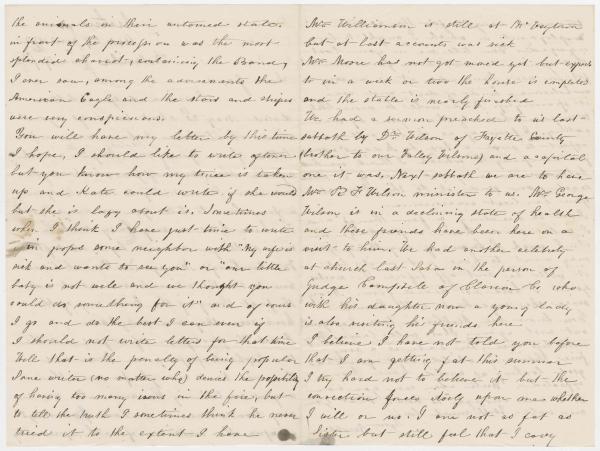 the animals in their untamed state.
in front of the procession was the most
splendid chariot, containing the Band,
I ever saw, among the adornments the
American Eagle and the stars and stripes
were very conspicuous.
You will have my letter by this time
I hope, I should like to write oftener
but you know how my time is taken
up and Kate could write if she would
but she is lazy about it. Sometimes
when I think I have just time to write
in pops some neighbor with "my wife is
sick and wants to see you" or "our little
baby is not well and we thought you
could do something for it" and of course
I go and do the best I can even if
I should not write letters for that time
Well that is the penalty of being popular
Some writer (no matter who) denies the possibility
of having too many irons in the fire, but
to tell the truth I sometimes think he never
tried it to the extent I have
Mr Williamson is still at
but at last accounts was sick
Mr Moore has not got moved yet but expects
to in a week or two the house is completed
and the stable is nearly finished
We had a sermon preached to us last
sabbath by Dr Wilson of Fayette County
(brother to our Valley Wilsons) and a capital
one it was. Next sabbath we are to have
Mr R F Wilson minister to us. Mr George
Wilson is in a declining state of health
and these friends have been here on a
visit to him. We had another celebrity
at church last Sab in the person of
Judge Campbell of Clarion Co who
with his daughter now a young lady
is also visiting his friends here
I believe I have not told you before
that I am getting fat this summer
I try hard not to believe it but the
conviction forces itself upon me whether
I will or no. I am not as fat as
Sister but still feel that I carry